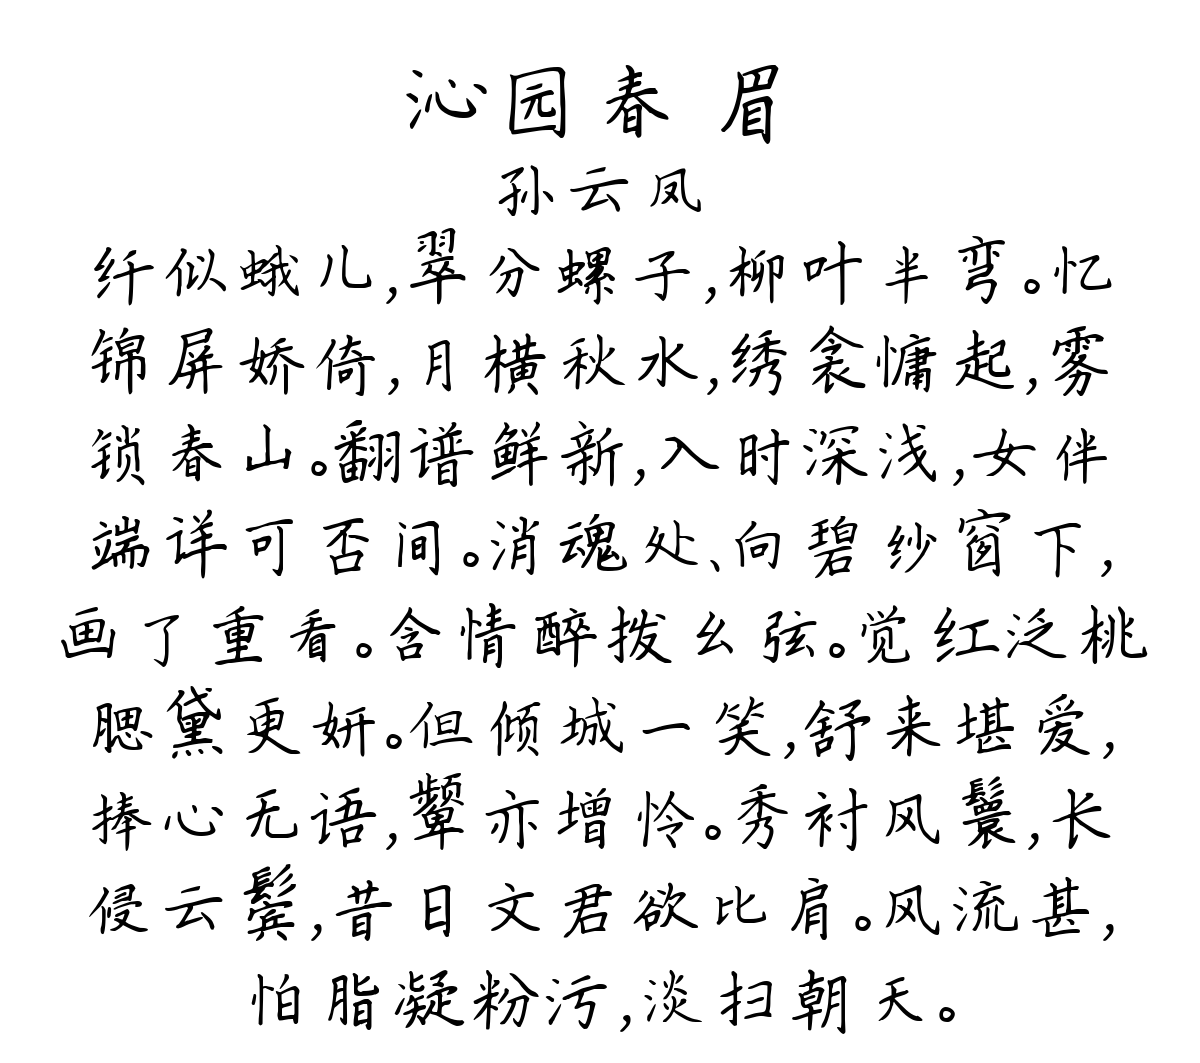 沁园春 眉
孙云凤
纤似蛾儿,翠分螺子,柳叶半弯。忆
锦屏娇倚,月横秋水,绣衾慵起,雾
锁春山。翻谱鲜新,入时深浅,女伴
端详可否间。消魂处、向碧纱窗下,
画了重看。含情醉拨幺弦。觉红泛桃
腮黛更妍。但倾城一笑,舒来堪爱,
捧心无语,颦亦增怜。秀衬风鬟,长
侵云鬓,昔日文君欲比肩。风流甚,
怕脂凝粉污,淡扫朝天。